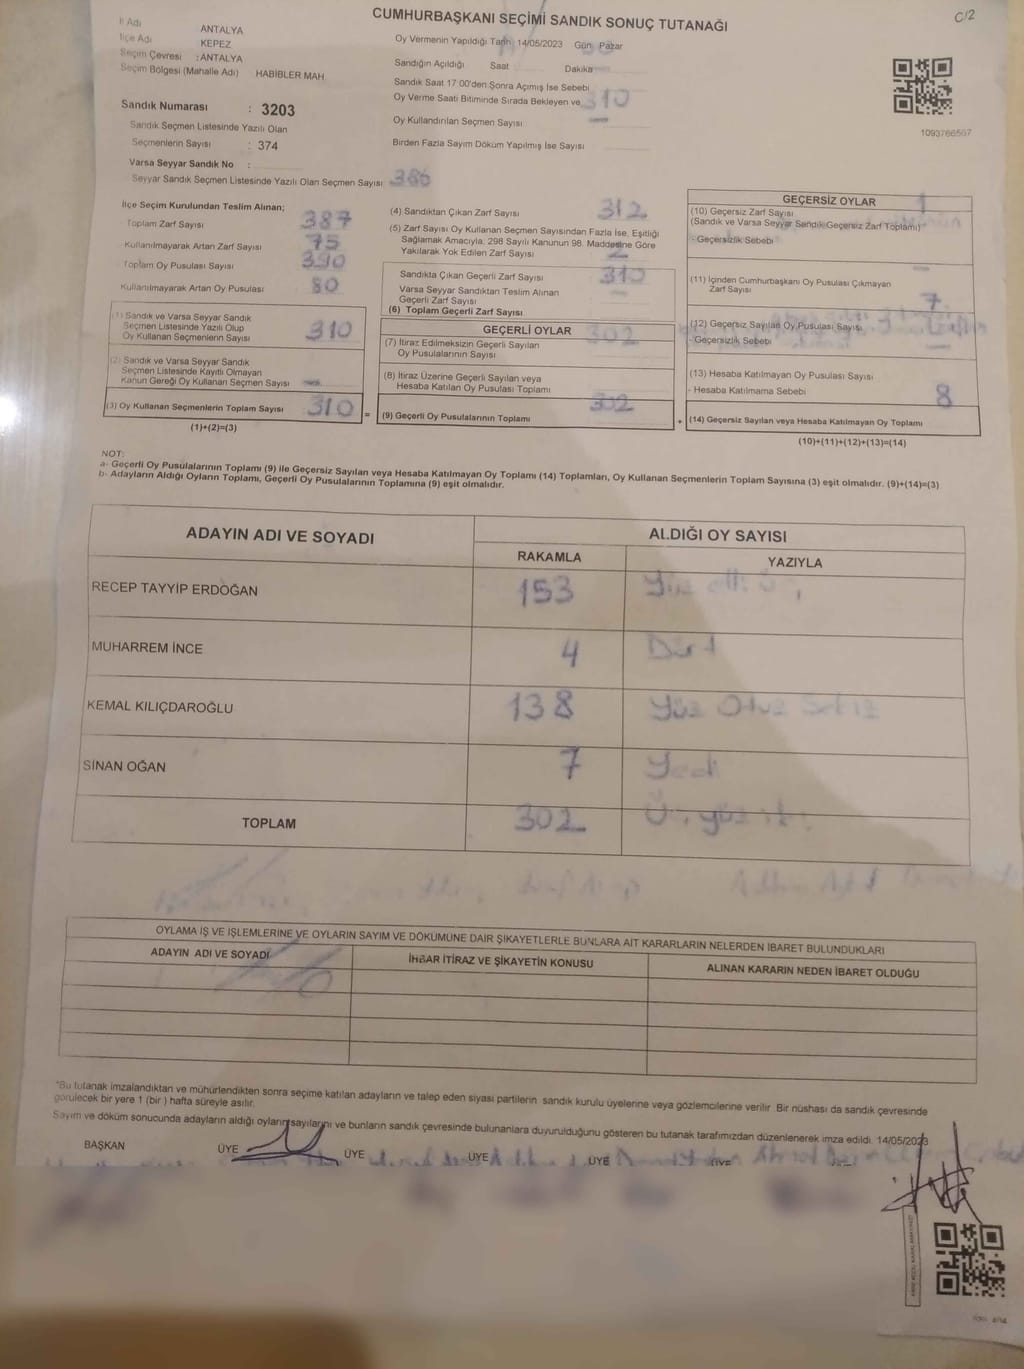 C/2
CUMHURBAŞKANI SEÇİMİ SANDIK SONUÇ TUTANAĞI
İl Adı ANTALYA
İlçe Adı KEPEZ
Seçim Çevresi : ANTALYA
Seçim Bölgesi (Mahalle Adı) HABİBLER MAH
Sandık Numarası : 3203
Sandık Seçmen Listesinde Yazılı Olan
Seçmenlerin Sayısı : 374
Varsa Seyyar Sandık No :
Seyyar Sandık Seçmen Listesinde Yazılı Olan Seçmen Sayısı 386
Oy Vermenin Yapıldığı Tarih 14/05/2023 Gün Pazar
Sandığın Açıldığı Saat Dakika
Sandık Saat 17:00'den Sonra Açımış İse Sebebi
Oy Verme Saati Bitiminde Sırada Bekleyen ve 310
Oy Kullandırılan Seçmen Sayısı
Birden Fazla Sayım Döküm Yapılmış İse Sayısı
1093766507
İlçe Seçim Kurulundan Teslim Alınan;
Toplam Zarf Sayısı 387
Kullanılmayarak Artan Zarf Sayısı 75
Toplam Oy Pusulası Sayısı 390
Kullanılmayarak Artan Oy Pusulası 80
(1) Sandık ve Varsa Seyyar Sandık
Seçmen Listesinde Yazılı Olup
Oy Kullanan Seçmenlerin Sayısı 310
(2) Sandık ve Varsa Seyyar Sandık
Seçmen Listesinde Kayıtlı Olmayan
Kanun Gereği Oy Kullanan Seçmen Sayısı
(3) Oy Kullanan Seçmenlerin Toplam Sayısı 310 =
(1)+(2)=(3)
(4) Sandıktan Çıkan Zarf Sayısı 312
(5) Zarf Sayısı Oy Kullanan Seçmen Sayısından Fazla İse, Eşitliği
Sağlamak Amacıyla, 298 Sayılı Kanunun 98. Maddesine Göre
Yakılarak Yok Edilen Zarf Sayısı 2
Sandıkta Çıkan Geçerli Zarf Sayısı 310
Varsa Seyyar Sandıktan Teslim Alınan
Geçerli Zarf Sayısı
(6) Toplam Geçerli Zarf Sayısı
GEÇERLİ OYLAR
(7) İtiraz Edilmeksizin Geçerli Sayılan 302
Oy Pusulalarının Sayısı
(8) İtiraz Üzerine Geçerli Sayılan veya
Hesaba Katılan Oy Pusulası Toplamı
(9) Geçerli Oy Pusulalarının Toplamı 302 +
GEÇERSİZ OYLAR
(10) Geçersiz Zarf Sayısı 1
(Sandık ve Varsa Seyyar Sandık Geçersiz Zarf Toplamı)
- Geçersizlik Sebebi
(11) İçinden Cumhurbaşkanı Oy Pusulası Çıkmayan
Zarf Sayısı
7
(12) Geçersiz Sayılan Oy Pusulası Sayısı
- Geçersizlik Sebebi
(13) Hesaba Katılmayan Oy Pusulası Sayısı
- Hesaba Katılmama Sebebi 8
(14) Geçersiz Sayılan veya Hesaba Katılmayan Oy Toplamı
(10)+(11)+(12)+(13)=(14)
NOT:
a- Geçerli Oy Pusulalarının Toplamı (9) ile Geçersiz Sayılan veya Hesaba Katılmayan Oy Toplamı (14) Toplamları, Oy Kullanan Seçmenlerin Toplam Sayısına (3) eşit olmalıdır. (9)+(14)=(3)
b- Adayların Aldığı Oyların Toplamı, Geçerli Oy Pusulalarının Toplamına (9) eşit olmalıdır.
ADAYIN ADI VE SOYADI ALDIĞI OY SAYISI
RAKAMLA YAZIYLA
RECEP TAYYİP ERDOĞAN 153 Yüz elli Üç
MUHARREM İNCE 4 Dört
KEMAL KILIÇDAROĞLU 138 Yüz Otuz Sekiz
SİNAN OĞAN 7 Yedi
TOPLAM 302 Üçyüz iki
OYLAMA İŞ VE İŞLEMLERİNE VE OYLARIN SAYIM VE DÖKÜMÜNE DAİR ŞİKAYETLERLE BUNLARA AİT KARARLARIN NELERDEN İBARET BULUNDUKLARI
ADAYIN ADI VE SOYADI İHBAR İTİRAZ VE ŞİKAYETİN KONUSU ALINAN KARARIN NEDEN İBARET OLDUĞU
*Bu tutanak imzalandıktan ve mühürlendikten sonra seçime katılan adayların ve talep eden siyasi partilerin sandık kurulu üyelerine veya gözlemcilerine verilir. Bir nüshası da sandık çevresinde
görülecek bir yere 1 (bir) hafta süreyle asılır.
Sayım ve döküm sonucunda adayların aldığı oyların sayılarını ve bunların sandık çevresinde bulunanlara duyurulduğunu gösteren bu tutanak tarafımızdan düzenlenerek imza edildi. 14/05/2023
BAŞKAN ÜYE ÜYE ÜYE ÜYE ÜYE